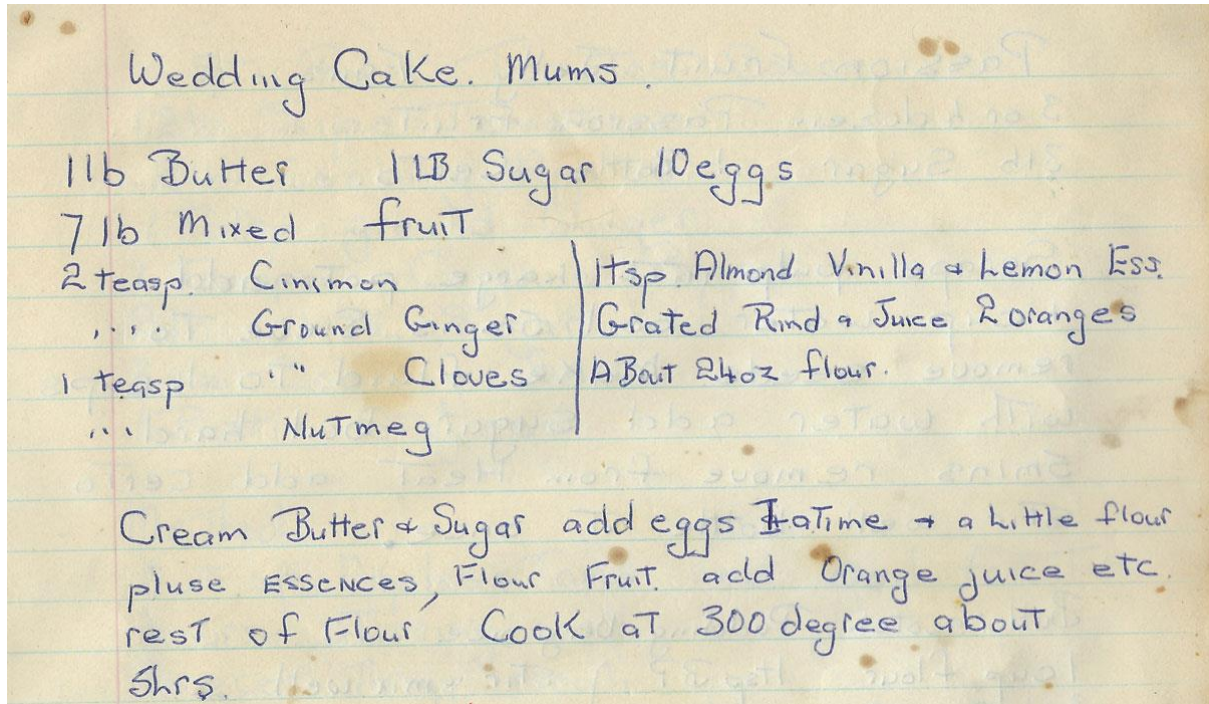 Wedding Cake. Mums.
1lb Butter 1LB Sugar 10eggs
7lb Mixed fruit
2 teasp. Cinimon
" Ground Ginger
1 teasp " Cloves
" Nutmeg
1tsp. Almond Vinilla & Lemon Ess.
Grated Rind & Juice 2 oranges
ABout 24oz flour.
Cream Butter & Sugar add eggs 1 aTime + a Little flour
pluse ESSENCES, Flour Fruit. add Orange juice etc.
rest of Flour Cook at 300 degree about
5hrs.